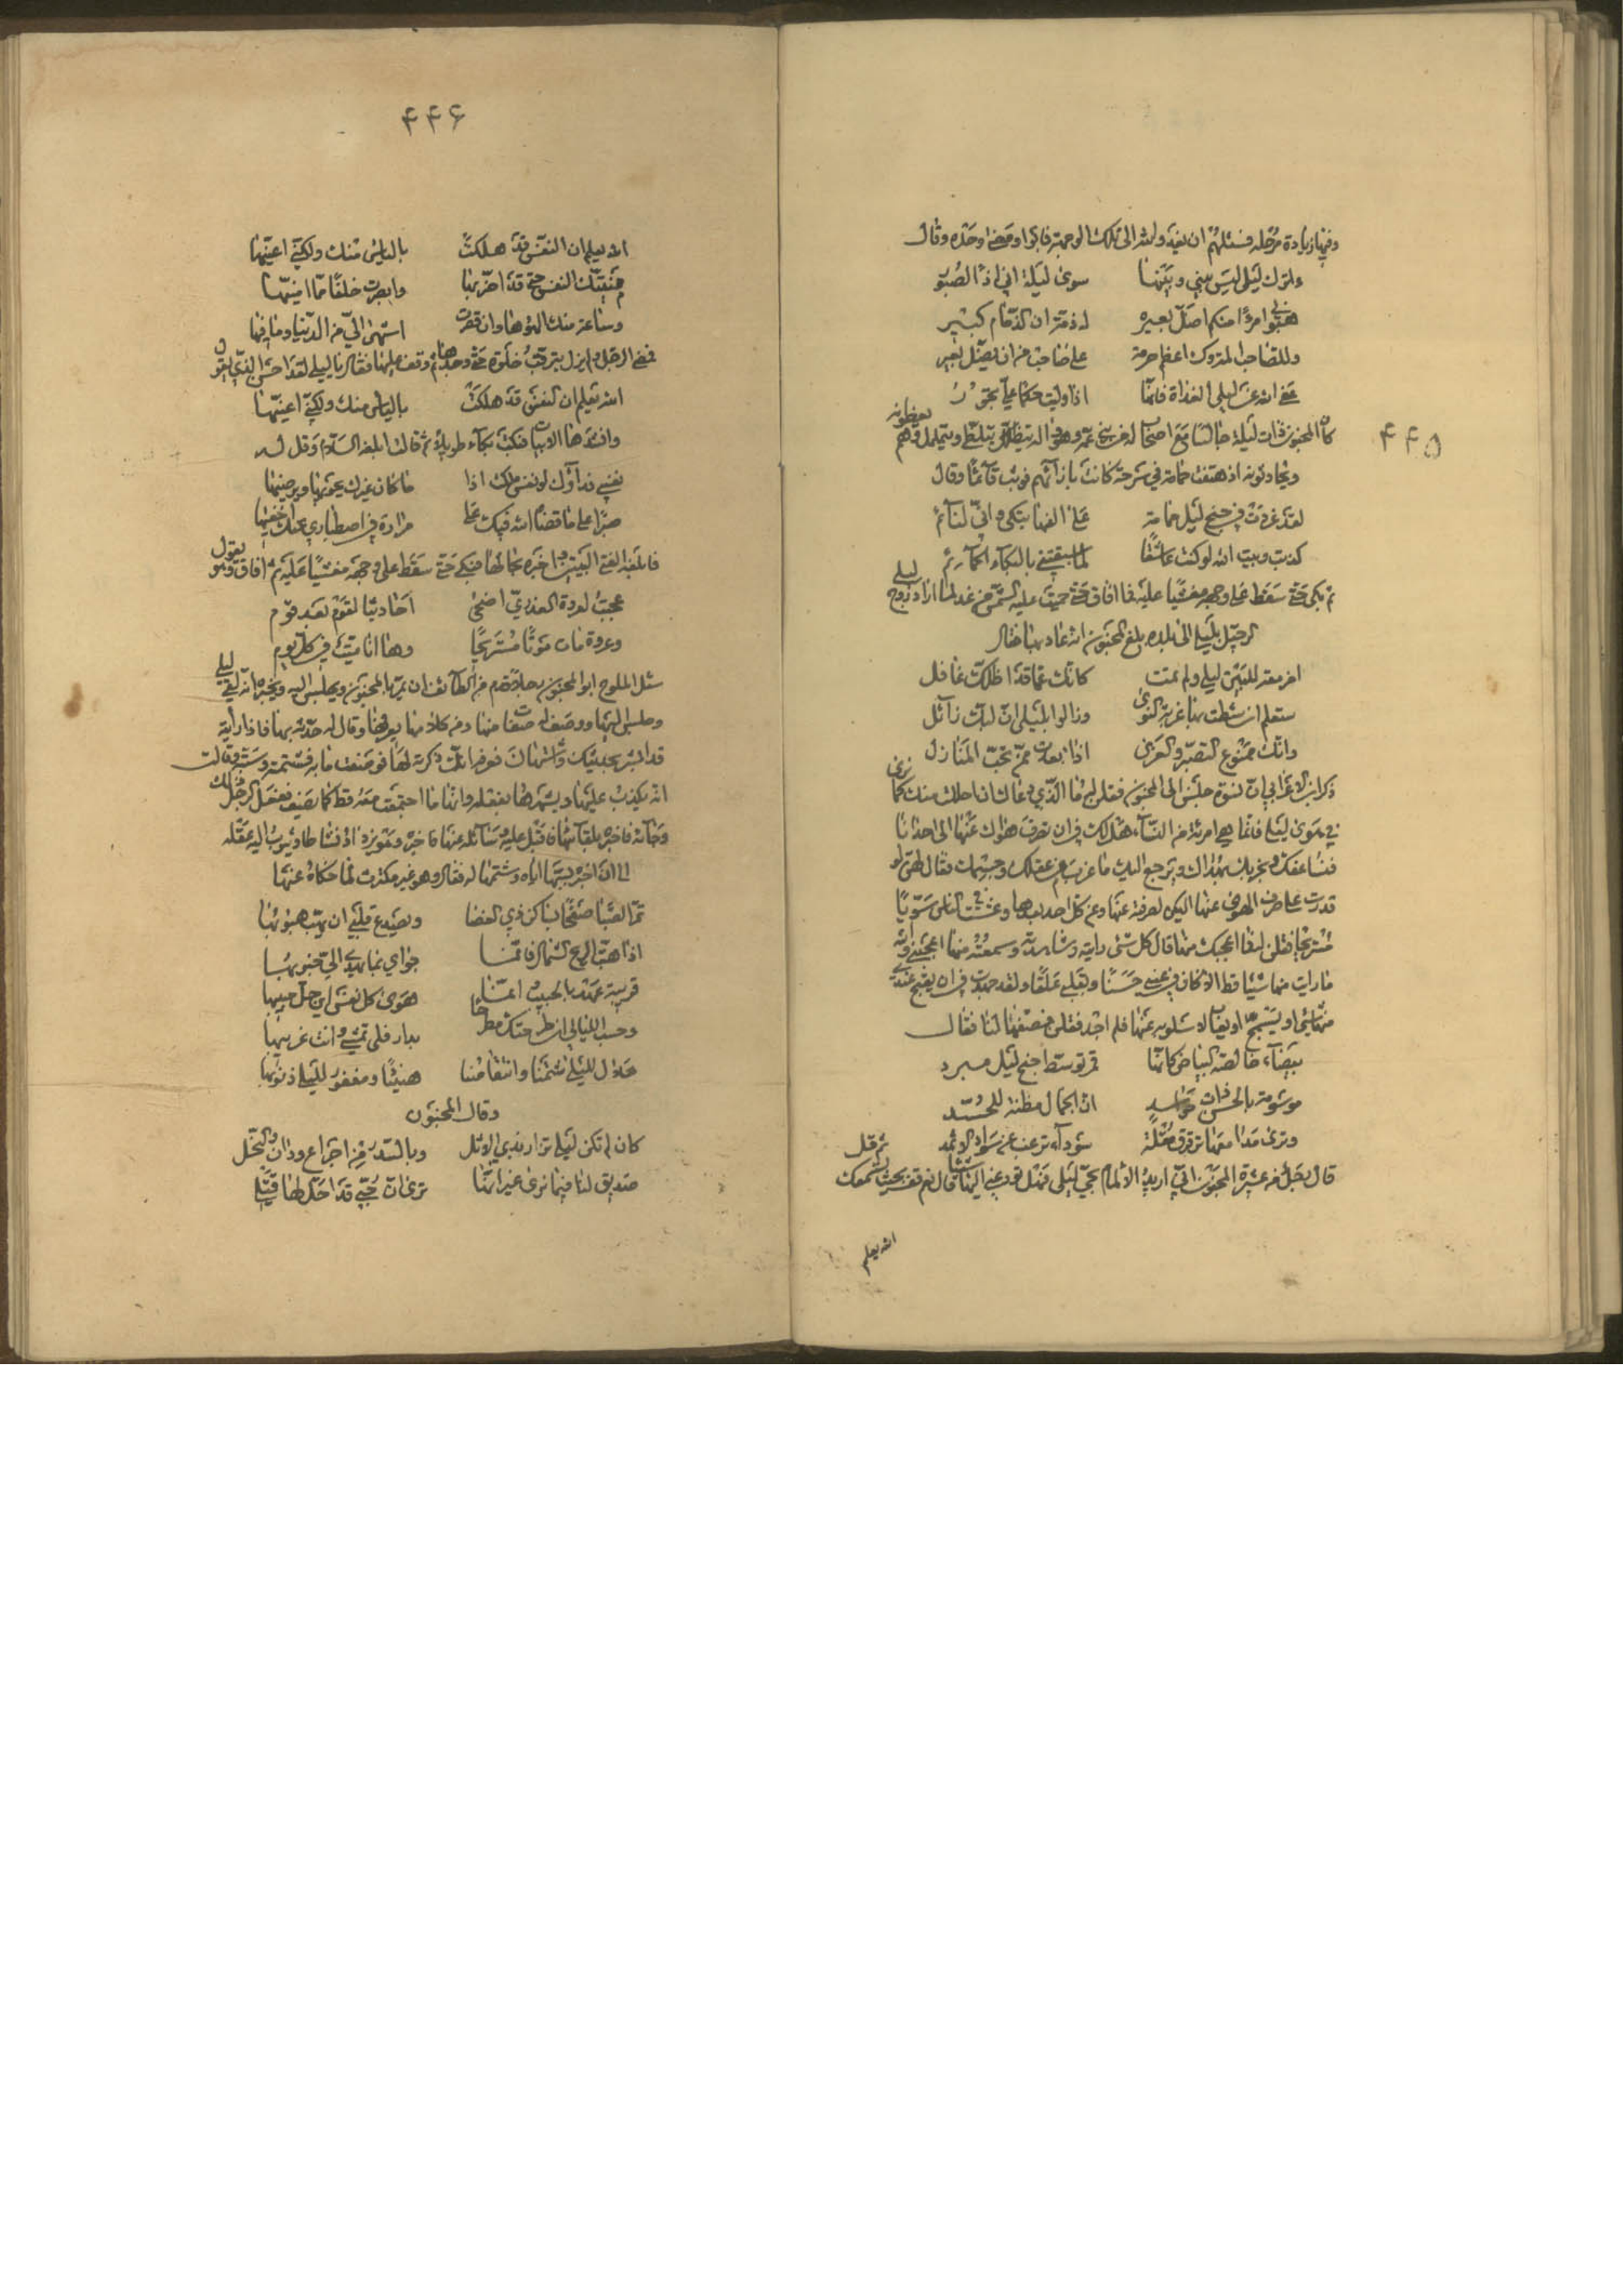 ۴۴۵
وفيها زيادة مرحلة فسئلهم ان يعدلوا معه الى تلك الوجهة فابوا ومضى وحده وقال
ءاترك ليلى ليس بيني وبينها سوى ليلة اني اذا لصبور
هبوني امرءا منكم اضل بعيره له ذمة ان الذمام كبير
وللصاحب المتروك اعظم حرمة على صاحب من ان يضل بعير
عفى الله عن ليلى الغداة فانها اذا وليت حكما علي تجور
كان المجنون ذات ليلة جالسا مع اصحاب له من بني عمه وهو واله يتلظى ويتململ وهم يعظونه
ويحادثونه اذ هتفت حمامة في سرحة كانت بازائهم فوثب قائما وقال
لقد غردت في جنح ليل حمامة على الفها تبكي واني لنائم
كذبت وبيت الله لو كنت عاشقا لما سبقتني بالبكاء الحمائم
ثم بكى حتى سقط على وجهه مغشيا عليه فما افاق حتى حميت عليه الشمس من غد لما اراد زوج ليلى
الرحيل بليلى الى بلده بلغ المجنون انه غاد بها فقال
امزمعة للبين ليلى ولم تمت كانك عما قد اظلك غافل
ستعلم ان شطت بها غربة النوى وزالوا بليلى ان لبك زائل
وانك ممنوع التصبر والعزى اذا بعدت ممن تحب المنازل
ذكر ابن الاعرابي ان نسوة جلسن الى المجنون فقلن له ما الذي دعاك الى ان احللت بنفسك ما نرى
في هوى ليلى فانما هي امرئة من النساء هل لك في ان تصرف هواك عنها الى احدانا
فنساعفك ونجزيك بهواك ويرجع اليك ما عزب من عقلك وجسمك فقال لهن لو
قدرت على صرف الهوى عنها اليكن لصرفته عنها وعن كل احد بعدها وعشت في الناس سويا
مستريحا فقلن له ما اعجبك منها قال كل شئ رايته وشاهدته وسمعته منها اعجبني والله
ما رايت منها شيئا قط الا كان في عيني حسنا وبقلبي علقا ولقد جهدت في ان يقبح عندي
منها شئ او يسمج او يعاب لاسلو به عنها فلم اجد فقلن فصفها لنا فقال
بيضاء خالصة البياض كانها قمر توسط جنح ليل مبرد
موسومة بالحسن ذات حواسد ان الجمال مظنة للحسد
وترى مدامعها ترقرق مقلة سوداء ترغب عن سواد الاثمد
قال رجل من عشيرة المجنون اني اريد الالمام بحي ليلى فهل تودعني اليها شيئا قال نعم قف بحيث تسمعك ثم قل
الله يعلم
۴۴۶
الله يعلم ان النفس قد هلكت بالياس منك ولكني اعنيها
منيتك النفس حتى قد اضر بها وابصرت خلفا مما امنيها
وساعة منك الهوها وان قصرت اشهى الي من الدنيا وما فيها
فمضى الرجل ولم يزل يترقب خلوة حتى وجدها ثم وقف عليها فقال يا ليلى لقد احسن الذي يقول
الله يعلم ان النفس قد هلكت بالياس منك ولكني اعنيها
وانشدها الابيات فبكت بكاء طويلا ثم قالت ابلغه السلام وقل له
نفسي فداؤك لو نفسي ملكت اذا ما كان غيرك يجزيها ويرضيها
صبرا على ما قضاه الله فيك على مرارة في اصطباري عنك اخفيها
فابلغه الفتى البيتين واخبره بحالها فبكى حتى سقط على وجهه مغشيا عليه ثم افاق وهو يقول
عجبت لعروة العذري اضحى احاديثا لقوم بعد قوم
وعروة مات موتا مستريحا وها انا ميت في كل يوم
سئل الملوح ابو المجنون رجلا قدم من الطائف ان يمر بالمجنون ويجلس اليه ويخبره انه لقي ليلى
وجلس اليها ووصف له صفات منها ومن كلامها يعرفها وقال له حدثه بها فاذا رايته
قد اشراب بحديثك واشتهاه فعرفه انك ذكرته لها فوصفت ما به فشتمته وسبته وقالت
انه يكذب عليها ويشهرها بفعله وانها ما اجتمعت معه قط كما يصف ففعل الرجل ذلك
وجائه فاخبره بلقائها فاقبل عليه يسائله عنها فاخبره وهو يزداد نشاطا ويثوب اليه عقله
الى ان اخبره بسبها اياه وشتمها له فقال وهو غير مكترث لما حكاه عنها
تمر الصبا صفحا بساكن ذي الغضا ويصدع قلبي ان يهب هبوبها
اذا هبت الريح الشمال فانما جواي بما تهدي الي جنوبها
قريبة عهد بالحبيب وانما هوى كل نفس اين حل حبيبها
وحسب الليالي ان طرحنك مطرحا بدار قلى تمسي وانت غريبها
حلال لليلى شتمنا وانتقاصنا هنيئا ومغفور لليلى ذنوبها
وقال المجنون
كان لم تكن ليلى تزار بذي الاثل وبالسدر من اجزاع ودان والنخل
صديق لنا فيما نرى غير انها ترى ان حبي قد احل لها قتلي